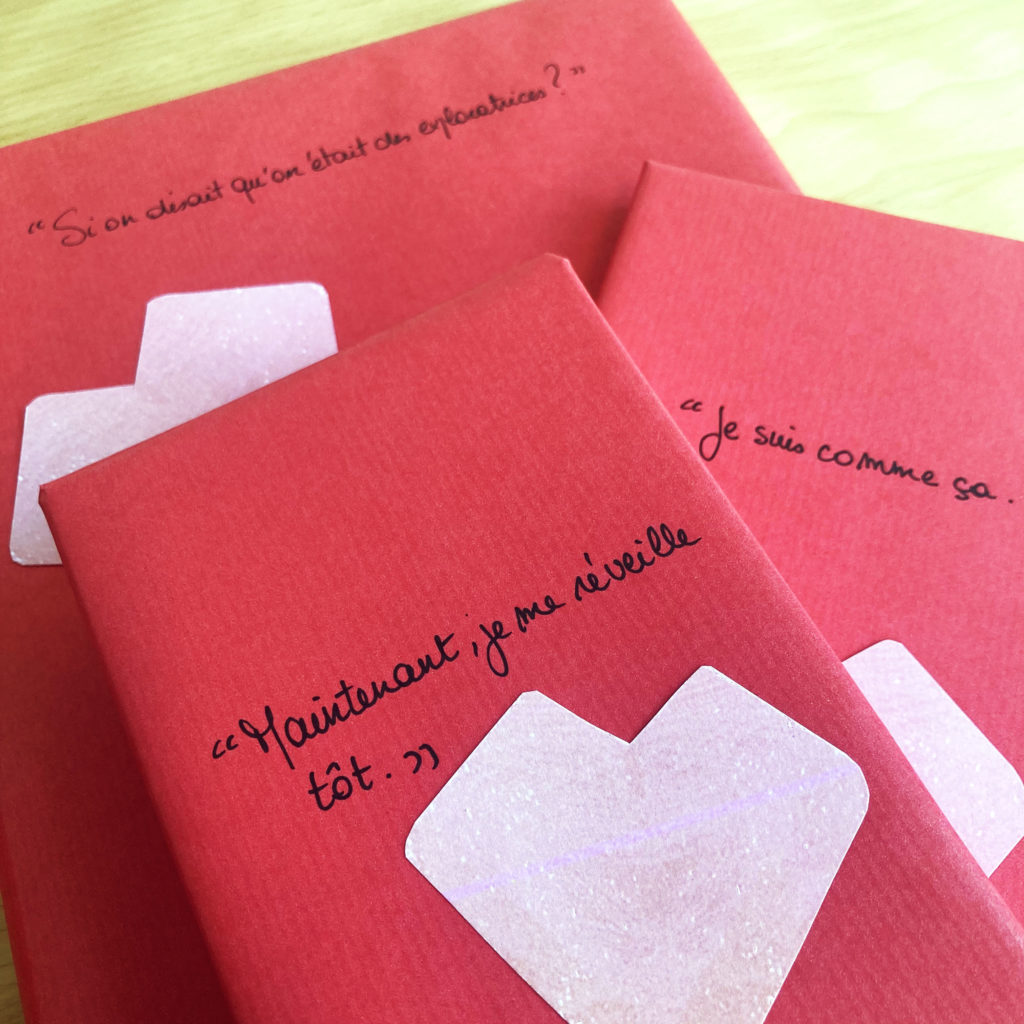 “Si on disait qu'on était des exploratrices?”
“Je suis comme ça.
“Maintenant, je me réveille
tôt.”